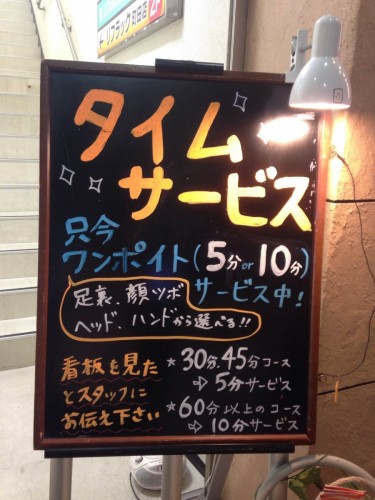 タイム
サービス
只今
ワンポイト(5分or10分)
サービス中!
足裏、顔ツボ
ヘッド、ハンドから選べる!!
看板を見た
とスタッフに
お伝え下さい
★30分.45分コース
⇨5分サービス
★60分以上のコース
⇨10分サービス